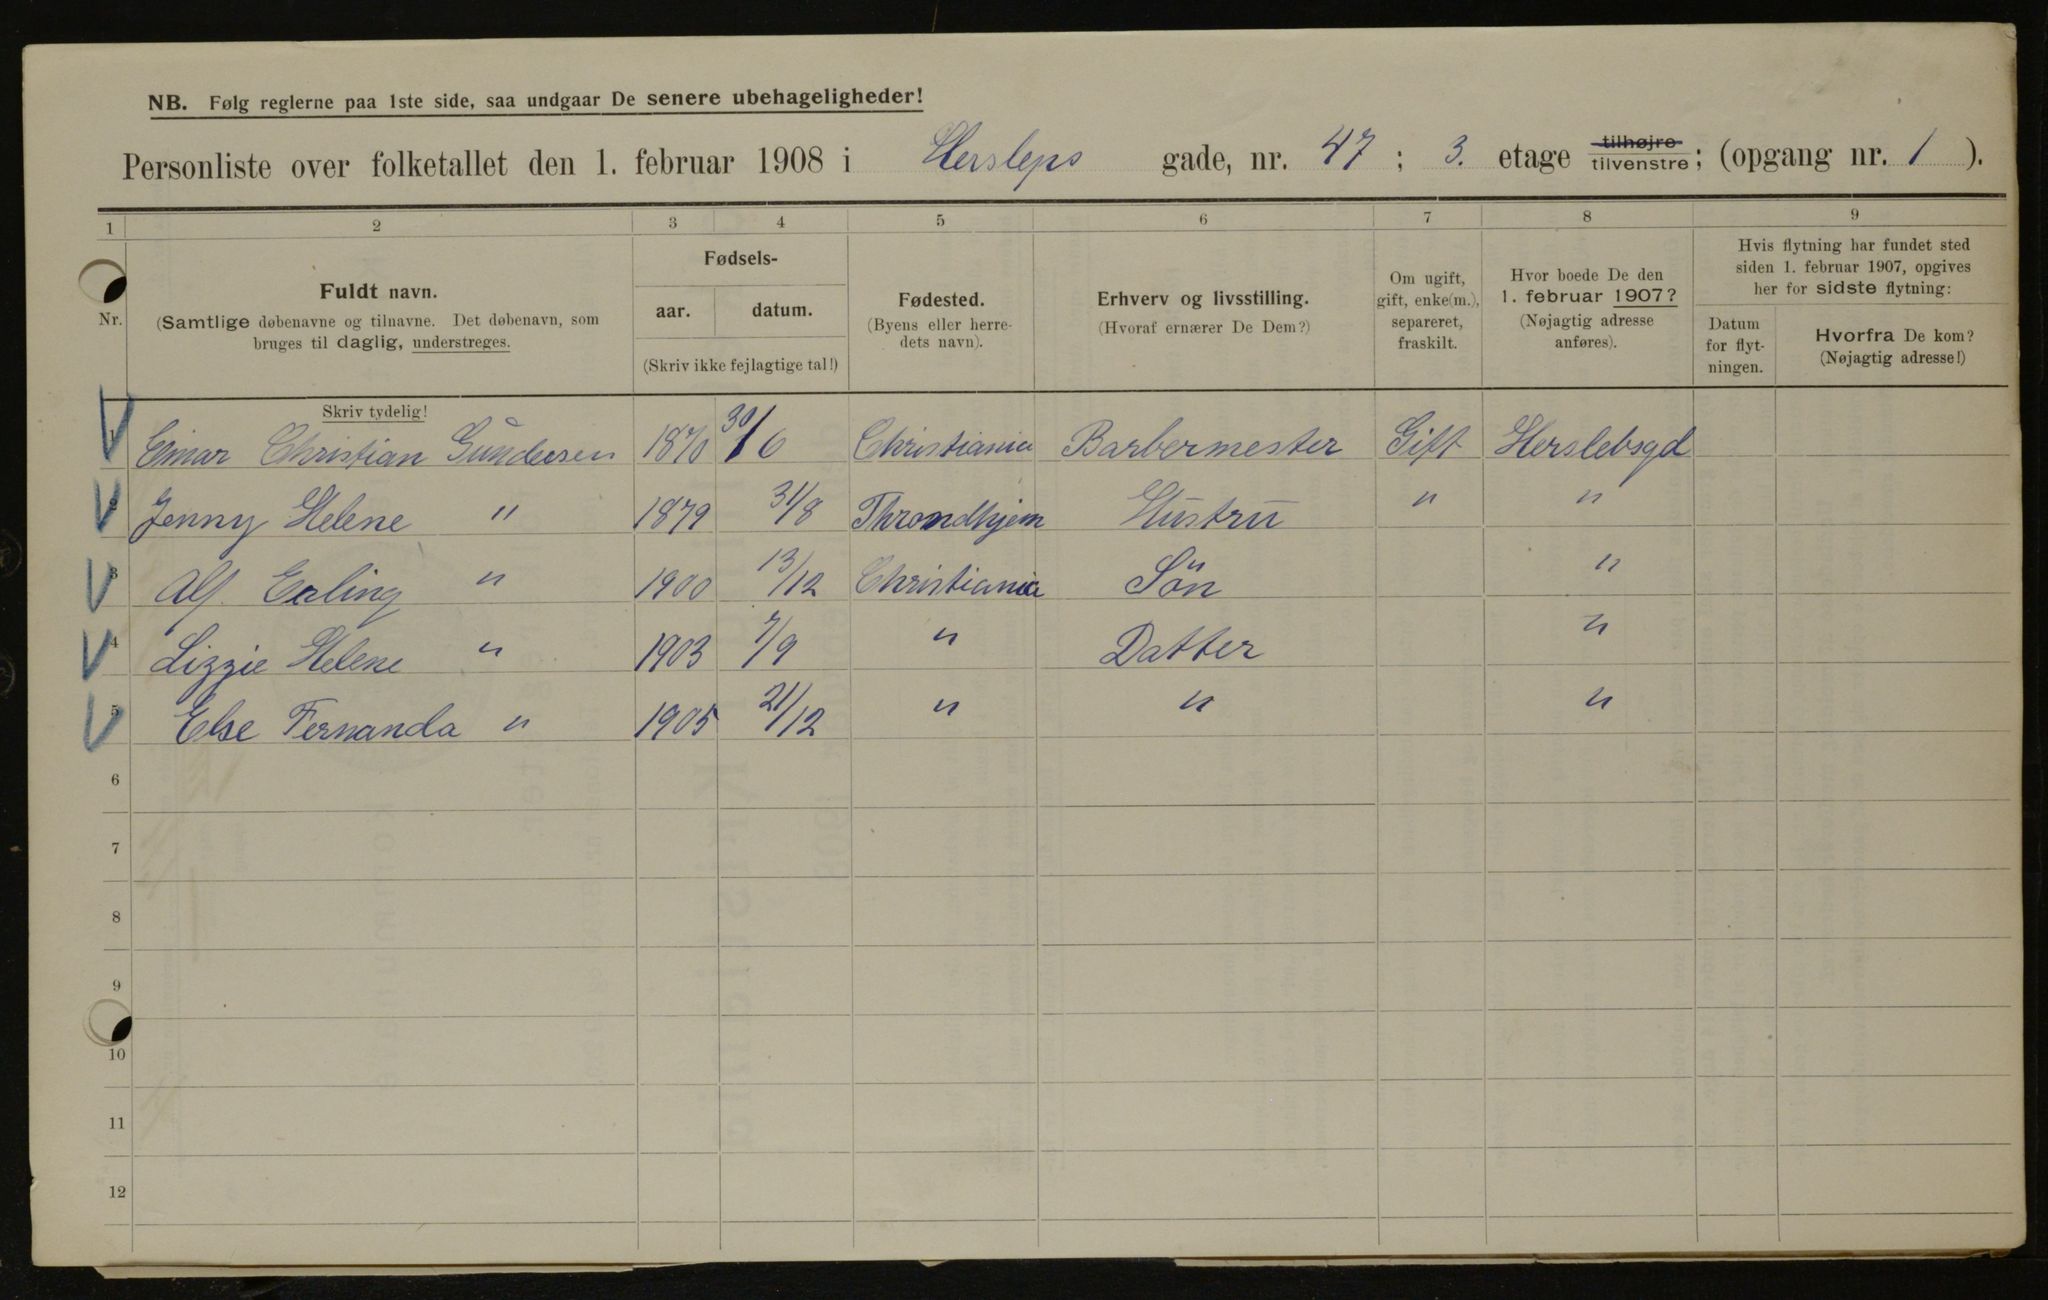 NB. Følg reglerne paa 1ste side, saa undgaar De senere ubehageligheder!
Personliste over folketallet den 1. februar 1908 i Hersleps gade, nr. 47 ; 3. etage tilhøjre tilvenstre ; (opgang nr. 1 ).
1 2 3 4 5 6 7 8 9
Nr.
Fuldt navn.
(Samtlige døbenavne og tilnavne. Det døbenavn, som
bruges til daglig, understreges.
Skriv tydelig!
Fødsels-
aar. datum.
(Skriv ikke fejlagtige tal!)
Fødested.
(Byens eller herre-
dets navn).
Erhverv og livsstilling.
(Hvoraf ernærer De Dem?)
Om ugift,
gift, enke(m.),
separeret,
fraskilt.
Hvor boede De den
1. februar 1907?
(Nøjagtig adresse
anføres).
Hvis flytning har fundet sted
siden 1. februar 1907, opgives
her for sidste flytning:
Datum
for flyt-
ningen.
Hvorfra De kom?
(Nøjagtig adresse!)
1 Einar Christian Gundersen 1870 30/6 Christiania Barbermester Gift Herslebsgd
2 Jenny Helene " 1879 31/8 Throndhjem Hustru " "
3 Alf Erling " 1900 13/12 Christiania Søn "
4 Lizzie Helene " 1903 7/9 " Datter "
5 Else Fernanda " 1905 21/12 " " "
6
7
8
9
10
11
12